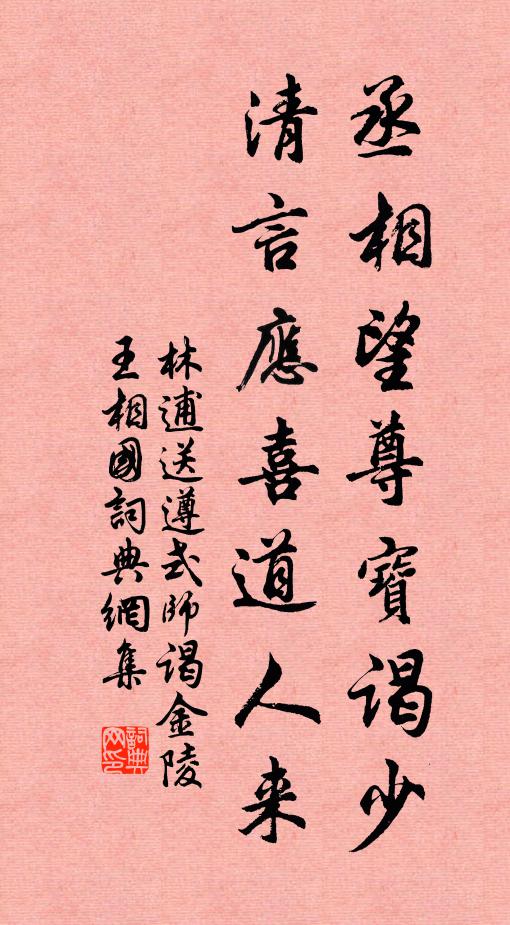 丞相望尊寶謁少
清言應喜道人来
林逋送遵式師謁金陵
王相國詞典網集
詞典网印